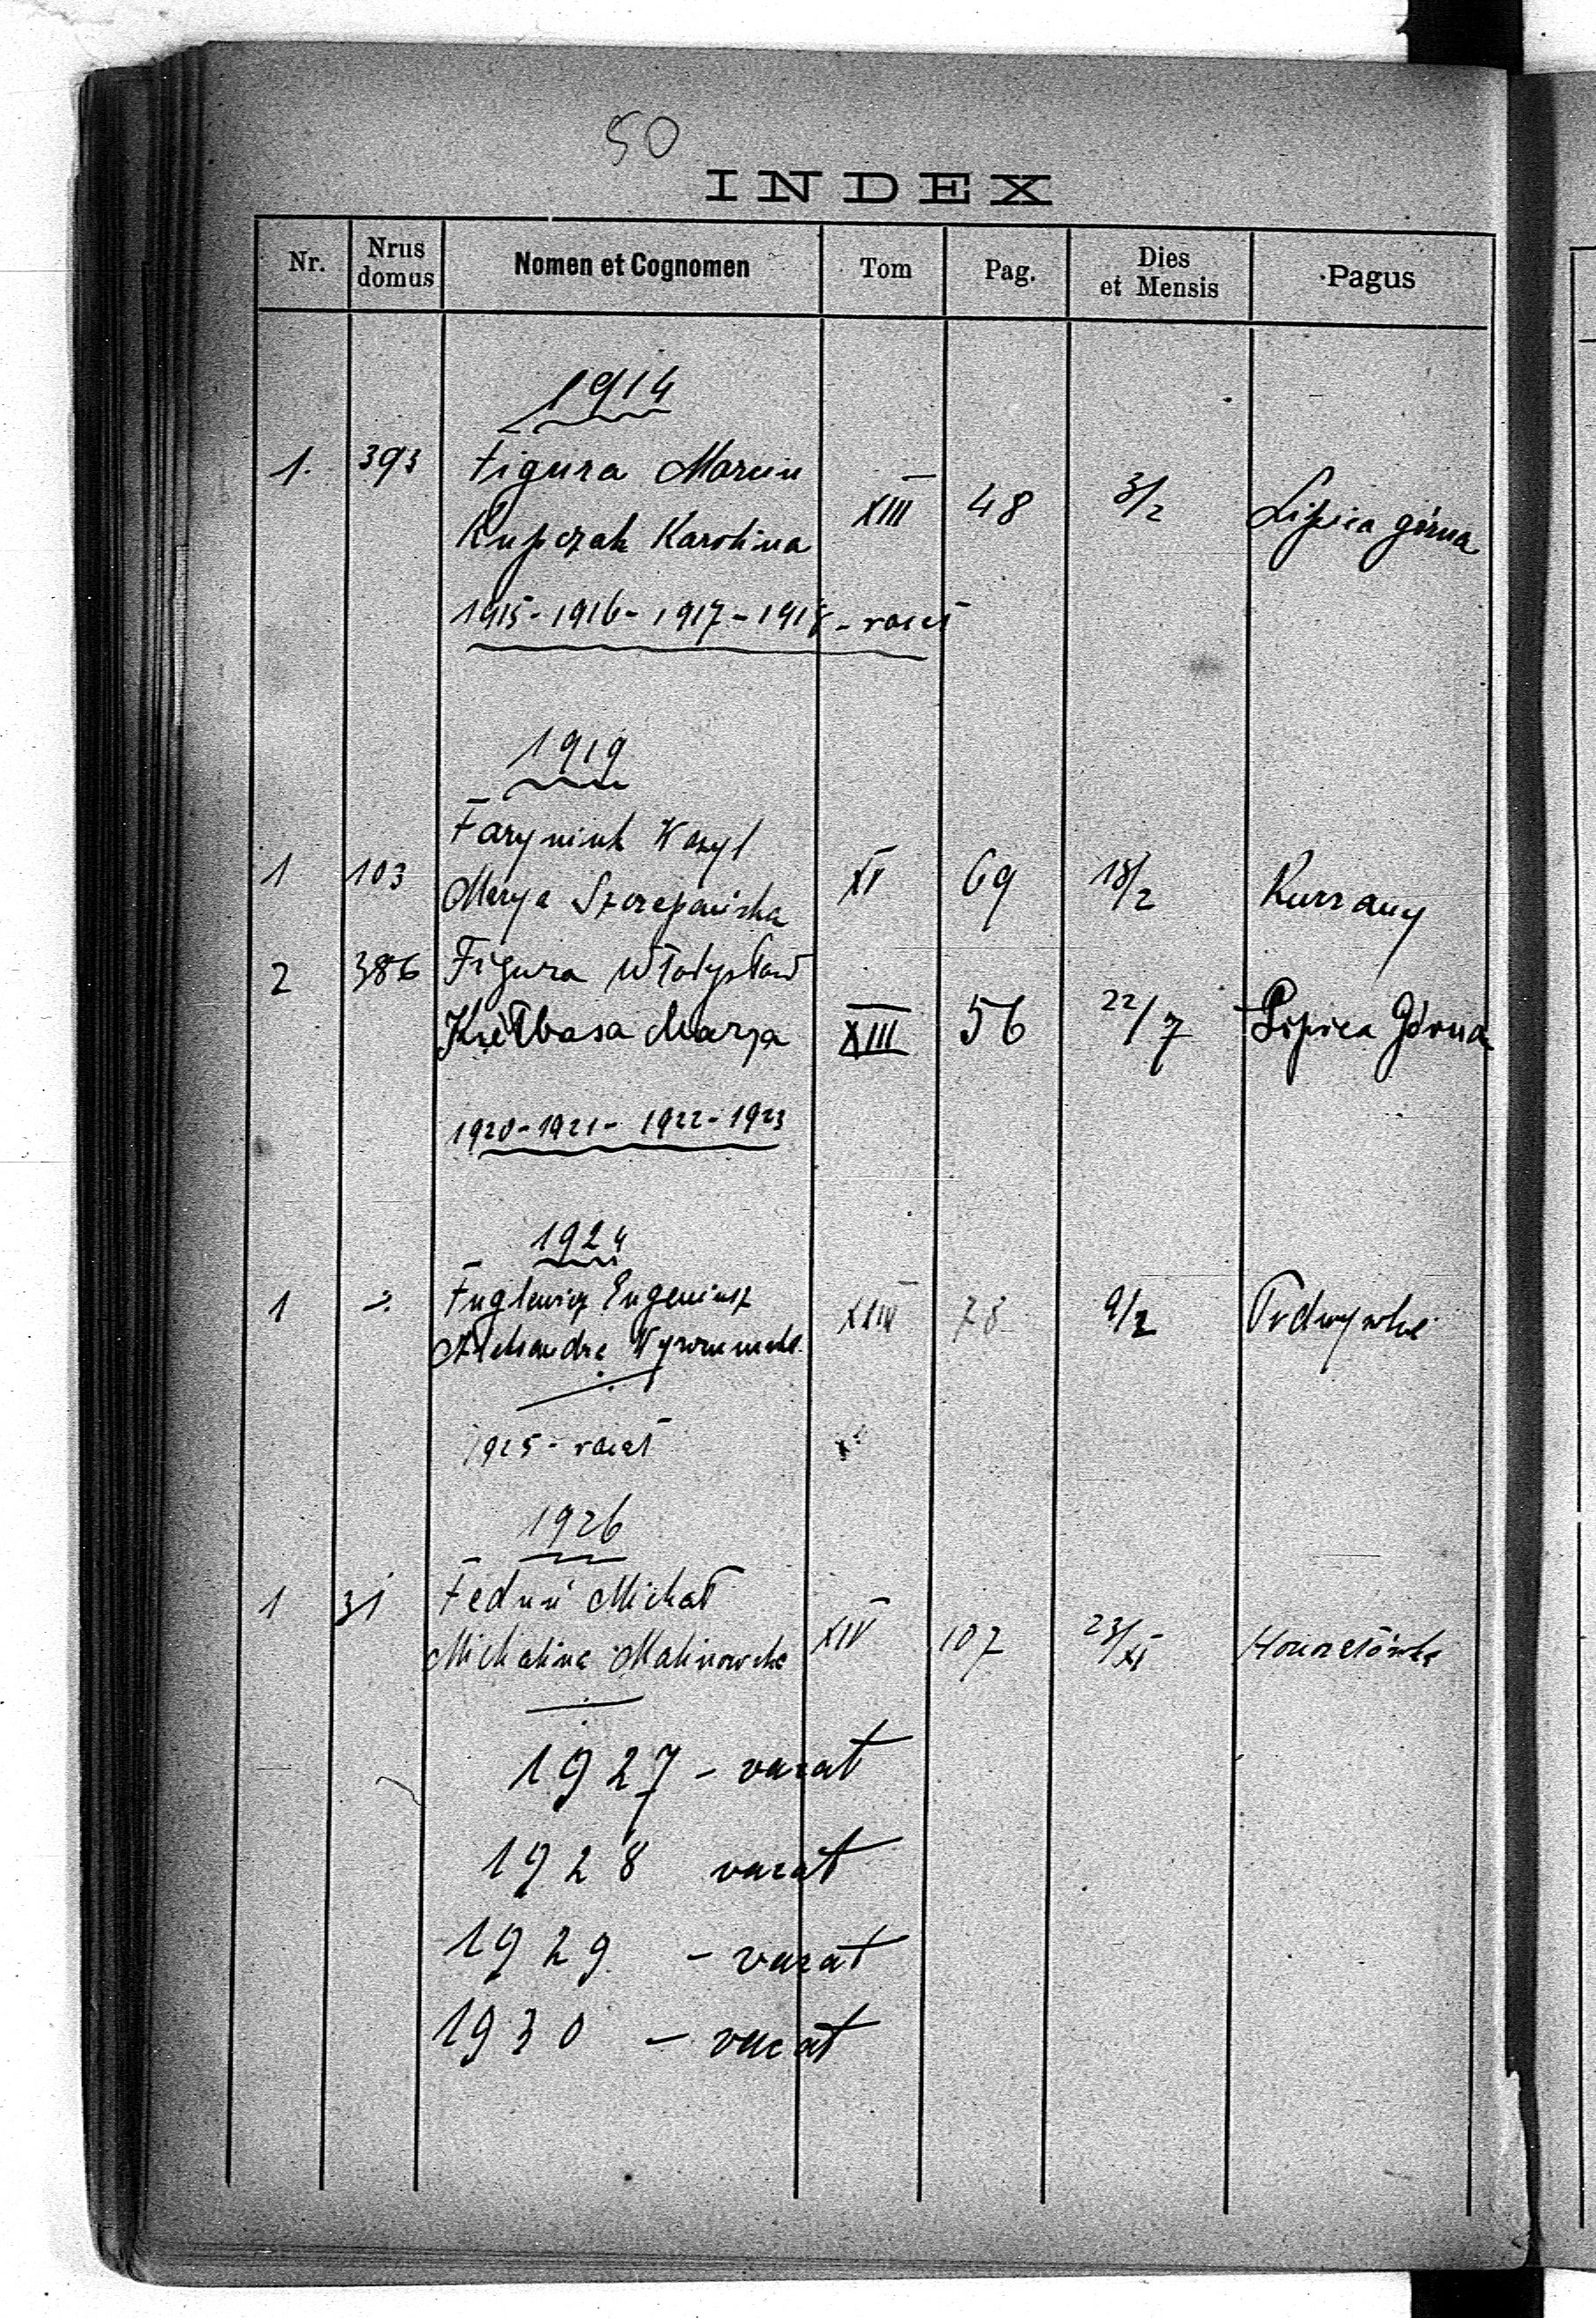 50
INDEX
Nr. Nrus domus Nomen et Cognomen Tom Pag. Dies et Mensis Pagus
1914
1. 393 Figura Marcin
Kupczak Karolina XIII 48 3/2 Lipica górna
1915-1916-1917-1918-vacat
1919
Faryniuk Wasyl
1 103 Marya Szczepańska XV 69 18/2 Kurzany
2 386 Figura Włodysław
Kiełbasa Marya XIII 56 22/7 Lipica Górna
1920-1921-1922-1923
1924
1 Fuglewicz Eugeniusz
Aleksandra XIII 78 9/2
1925-vacat
1926
1 31 Feduń Michał
Michalina Malinowska XIV 107 23/XI
1927 - vacat
1928 vacat
1929 - vacat
1930 - vacat